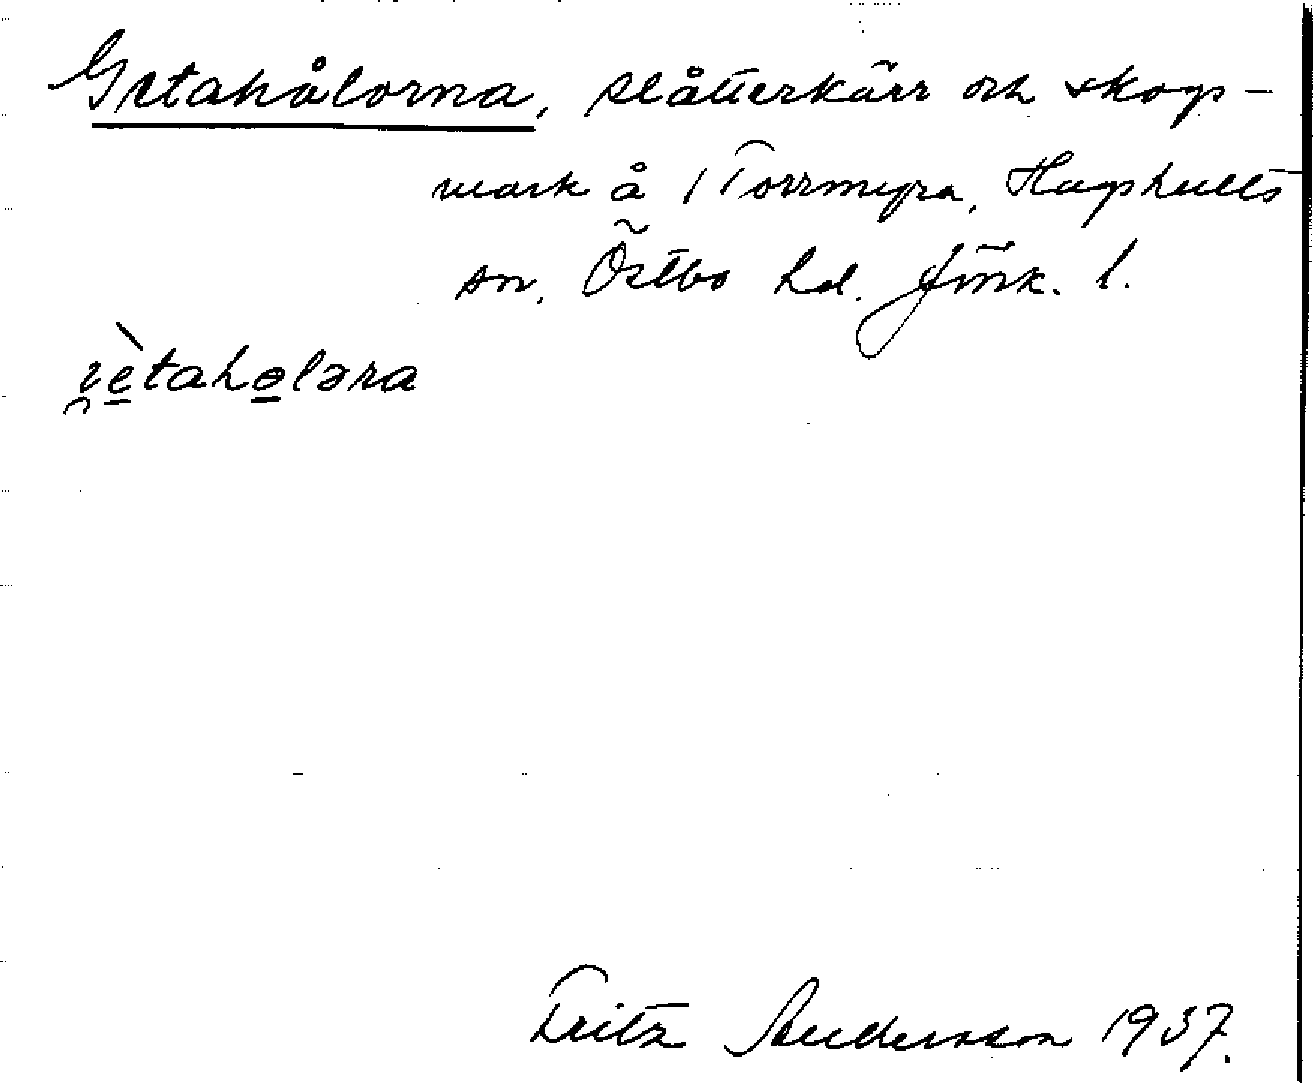 Getahålorna, slåtterkärr och skogs-
mark å 1 Torrmyra, Hagshults
sn, Östbo hd. Jönk. l.
i̯è̠tahɵ̠ləra
Fritz Andersson 1937.